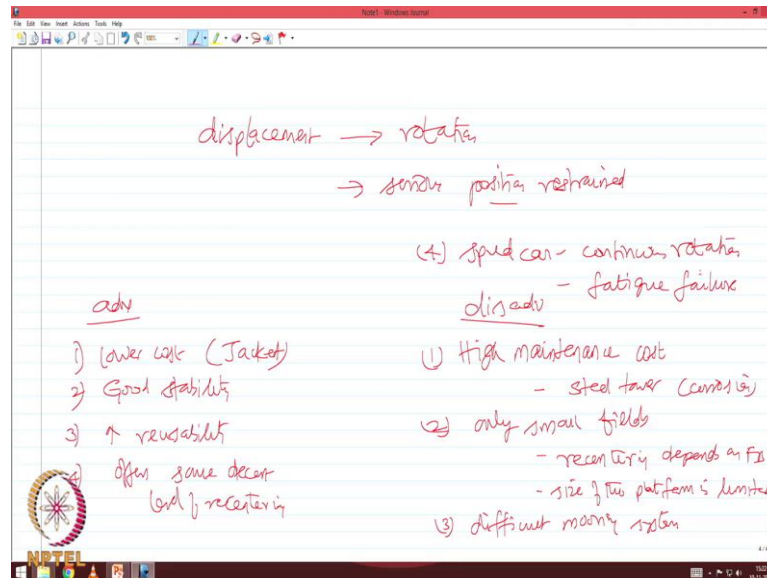 Note1 - Windows Journal
File Edit View Insert Actions Tools Help
displacement → rotation
→ sensor position restrained
(4) speed can - continuous rotation
- fatigue failure
adv
1) lower cost (Jacket)
2) Good stability
3) ↑ reusability
4) offers some decent
level of recentering
disadv
(1) High maintenance cost
- steel tower (corrosion)
(2) only small fields
- recentering depends on FB
- size of the platform is limited
(3) difficult mooring system
NPTEL
15:22